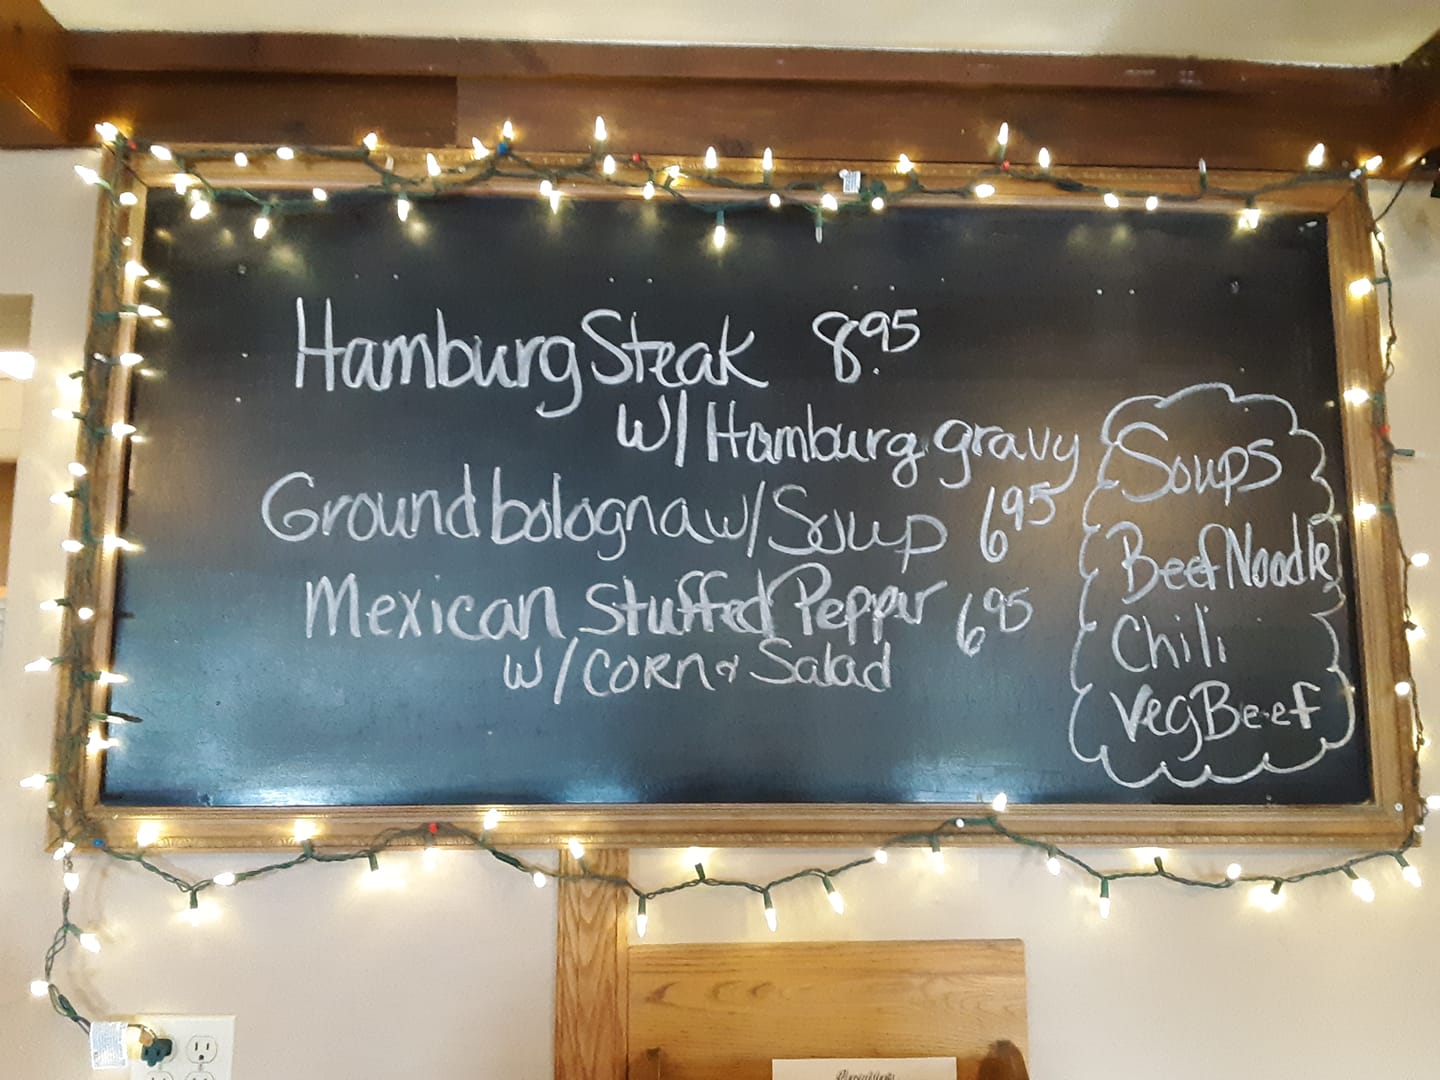 Hamburg Steak 8.95
w/ Hamburg gravy
Ground bologna w/ Soup 6 95
Mexican Stuffed Pepper 6 95
w/ CORN & Salad
Soups
Beef Noodle
Chili
Veg Beef